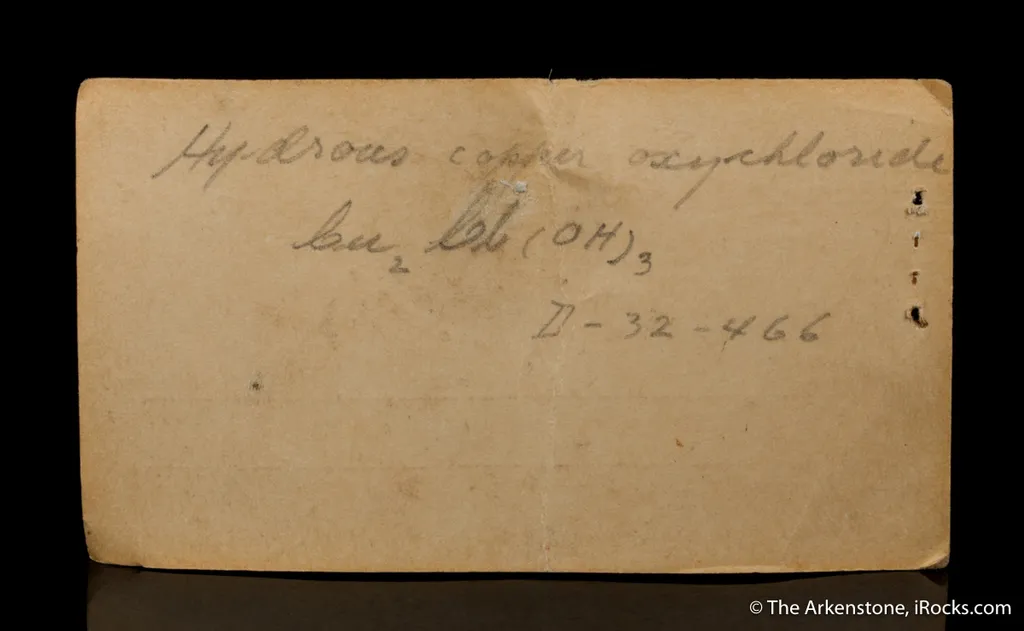 Hydrous copper oxychloride
Cu₂ Cl (OH)₃
D-32-466
© The Arkenstone, iRocks.com